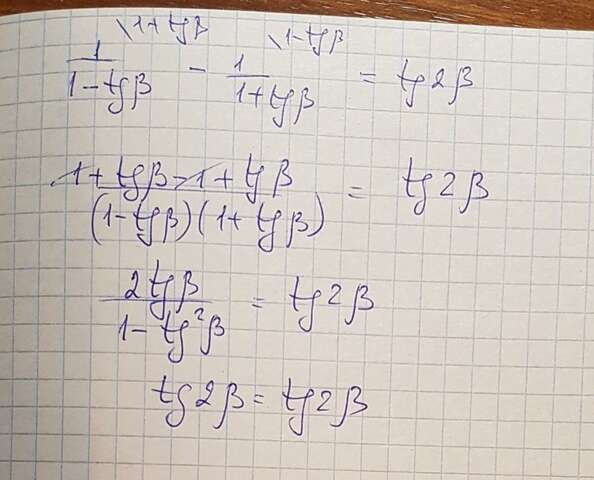 \1+tgβ \1-tgβ
1/(1-tgβ) - 1/(1+tgβ) = tg2β
(1+tgβ-1+tgβ)/((1-tgβ)(1+tgβ)) = tg2β
2tgβ/(1-tg²β) = tg2β
tg2β = tg2β